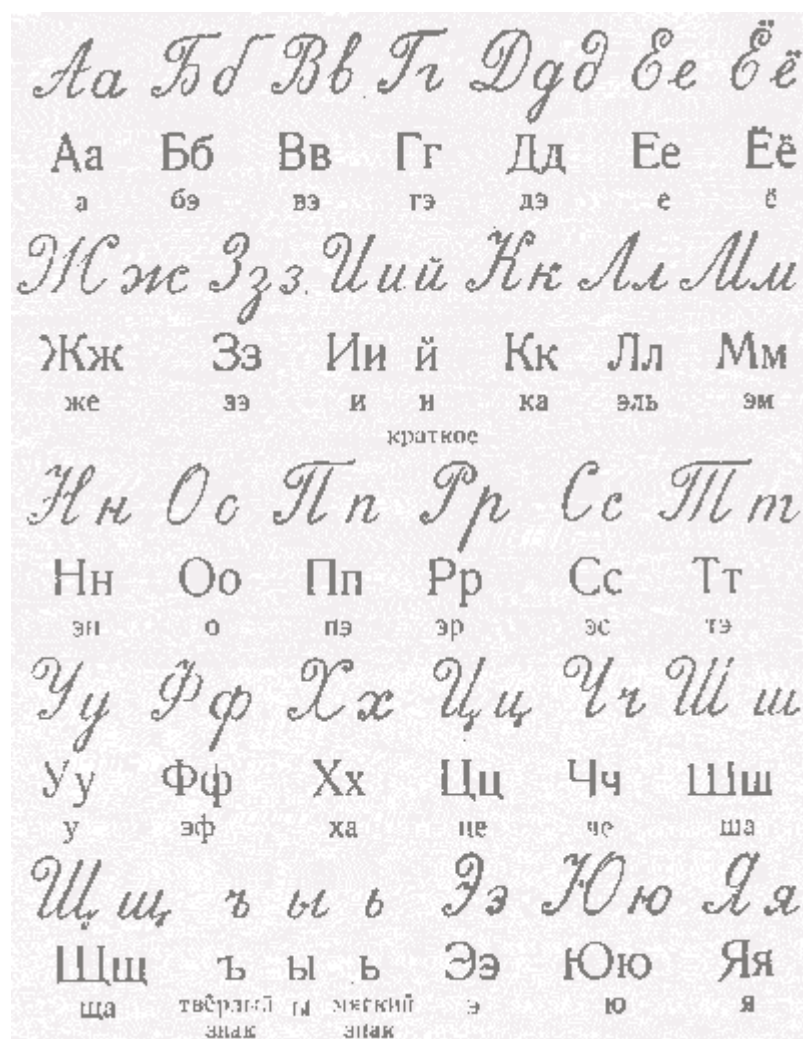 Аа Бб Вв Гг Ддд Ее Ёё
Аа Бб Вв Гг Дд Ее Ёё
а бэ вэ гэ дэ е ё
Жж Ззз Ии й Кк Лл Мм
Жж Зз Ии й Кк Лл Мм
же зэ и и ка эль эм
краткое
Нн Оо Пп Рр Сс Тт
Нн Оо Пп Рр Сс Тт
эн о пэ эр эс тэ
Уу Фф Хх Цц Чч Шш
Уу Фф Хх Цц Чч Шш
у эф ха це че ша
Щщ ъ ы ь Ээ Юю Яя
Щщ ъ ы ь Ээ Юю Яя
ща твёрдый ы мягкий э ю я
знак знак